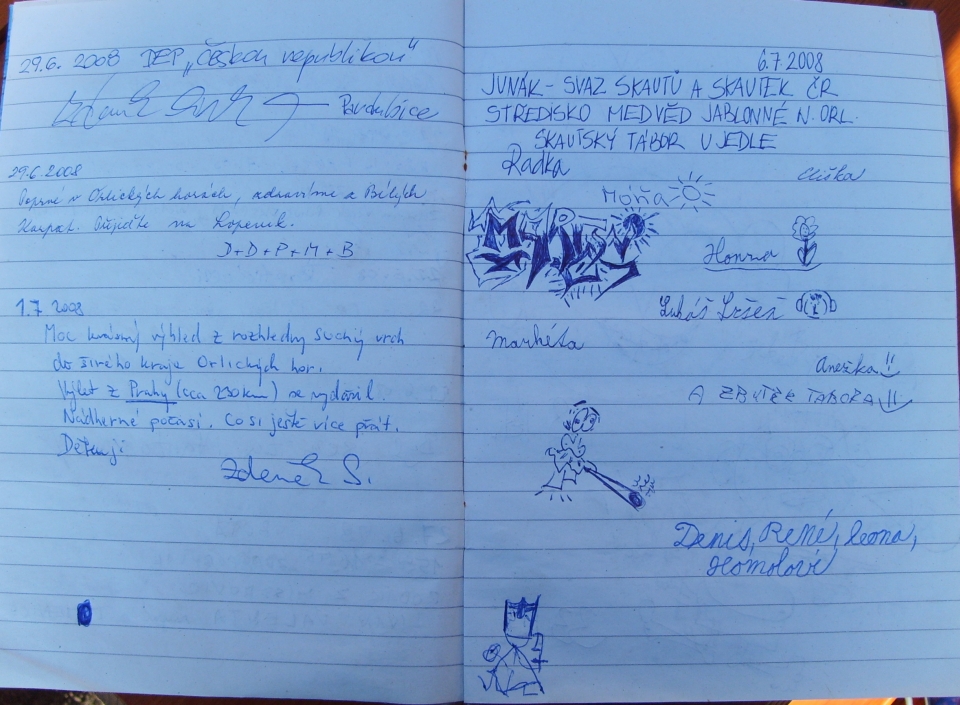 29.6. 2008 DEP „Českou republikou"
Zdeněk Pardubice
29.6.2008
Poprvé v Orlických horách, zdravíme z Bílých
Karpat. Přijeďte na Lopeník.
D+D+P+M+B
1.7 2008
Moc krásný výhled z rozhledny Suchý vrch
do širého kraje Orlických hor.
Výlet z Prahy (cca 230km) se vydařil.
Nádherné počasí. Co si ještě více přát.
Děkuji
Zdeněk S.
6.7.2008
JUNÁK - SVAZ SKAUTŮ A SKAUTEK ČR
STŘEDISKO MEDVĚD JABLONNÉ N. ORL.
SKAUTSKÝ TÁBOR U JEDLE
Radka
Eliška
Móňa
Honza
Lukáš
Markéta
Anežka
A ZBYTEK TABORA
Denis, René, Leona,
Homolovi